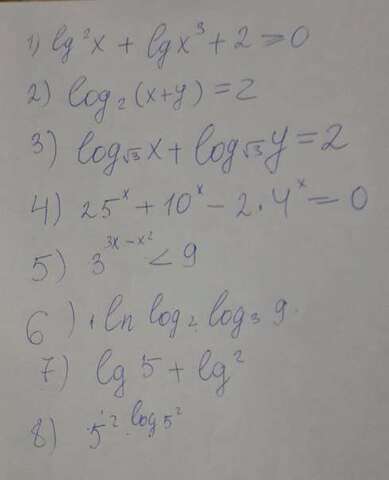 1) lg²x + lgx³ + 2 = 0
2) log₂(x+y) = 2
3) log√3 x + log√3 y = 2
4) 25ˣ + 10ˣ - 2·4ˣ = 0
5) 3^(3x-x²) < 9
6) ln log₂ log₃ 9
7) lg 5 + lg²
8) 5^(2 log5²)